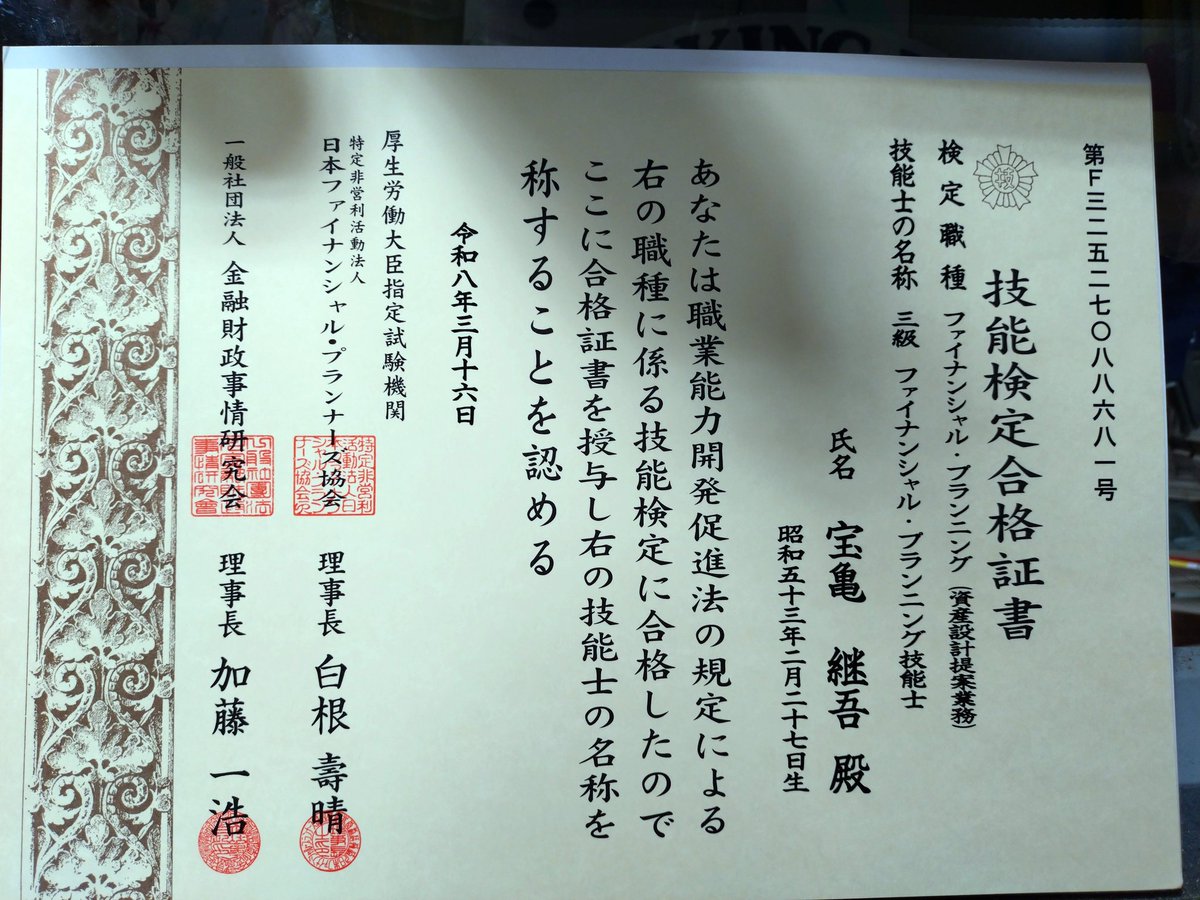 第F三二五二七〇八八六八一号
技能検定合格証書
検定職種 ファイナンシャル・プランニング(資産設計提案業務)
技能士の名称 三級 ファイナンシャル・プランニング技能士
氏名 宝亀 継吾 殿
昭和五十三年二月二十七日生
あなたは職業能力開発促進法の規定による
右の職種に係る技能検定に合格したので
ここに合格証書を授与し右の技能士の名称を
称することを認める
令和八年三月十六日
厚生労働大臣指定試験機関
特定非営利活動法人
日本ファイナンシャル・プランナーズ協会 理事長 白根 壽晴
一般社団法人 金融財政事情研究会 理事長 加藤 一浩